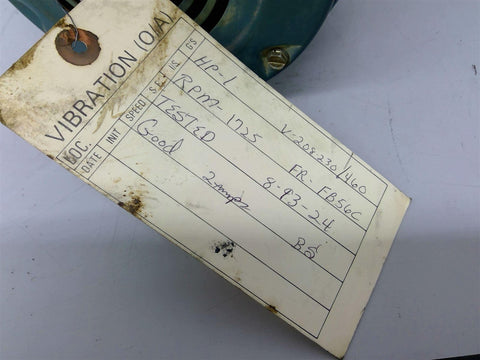 VIBRATION (O/A)
LOC. DATE INIT SPEED S.E. I.S. O.S.
HP-1 V-208-230/460
RPM-1725 FR-FB56C
TESTED 8-93-24
Good 2 amps BS